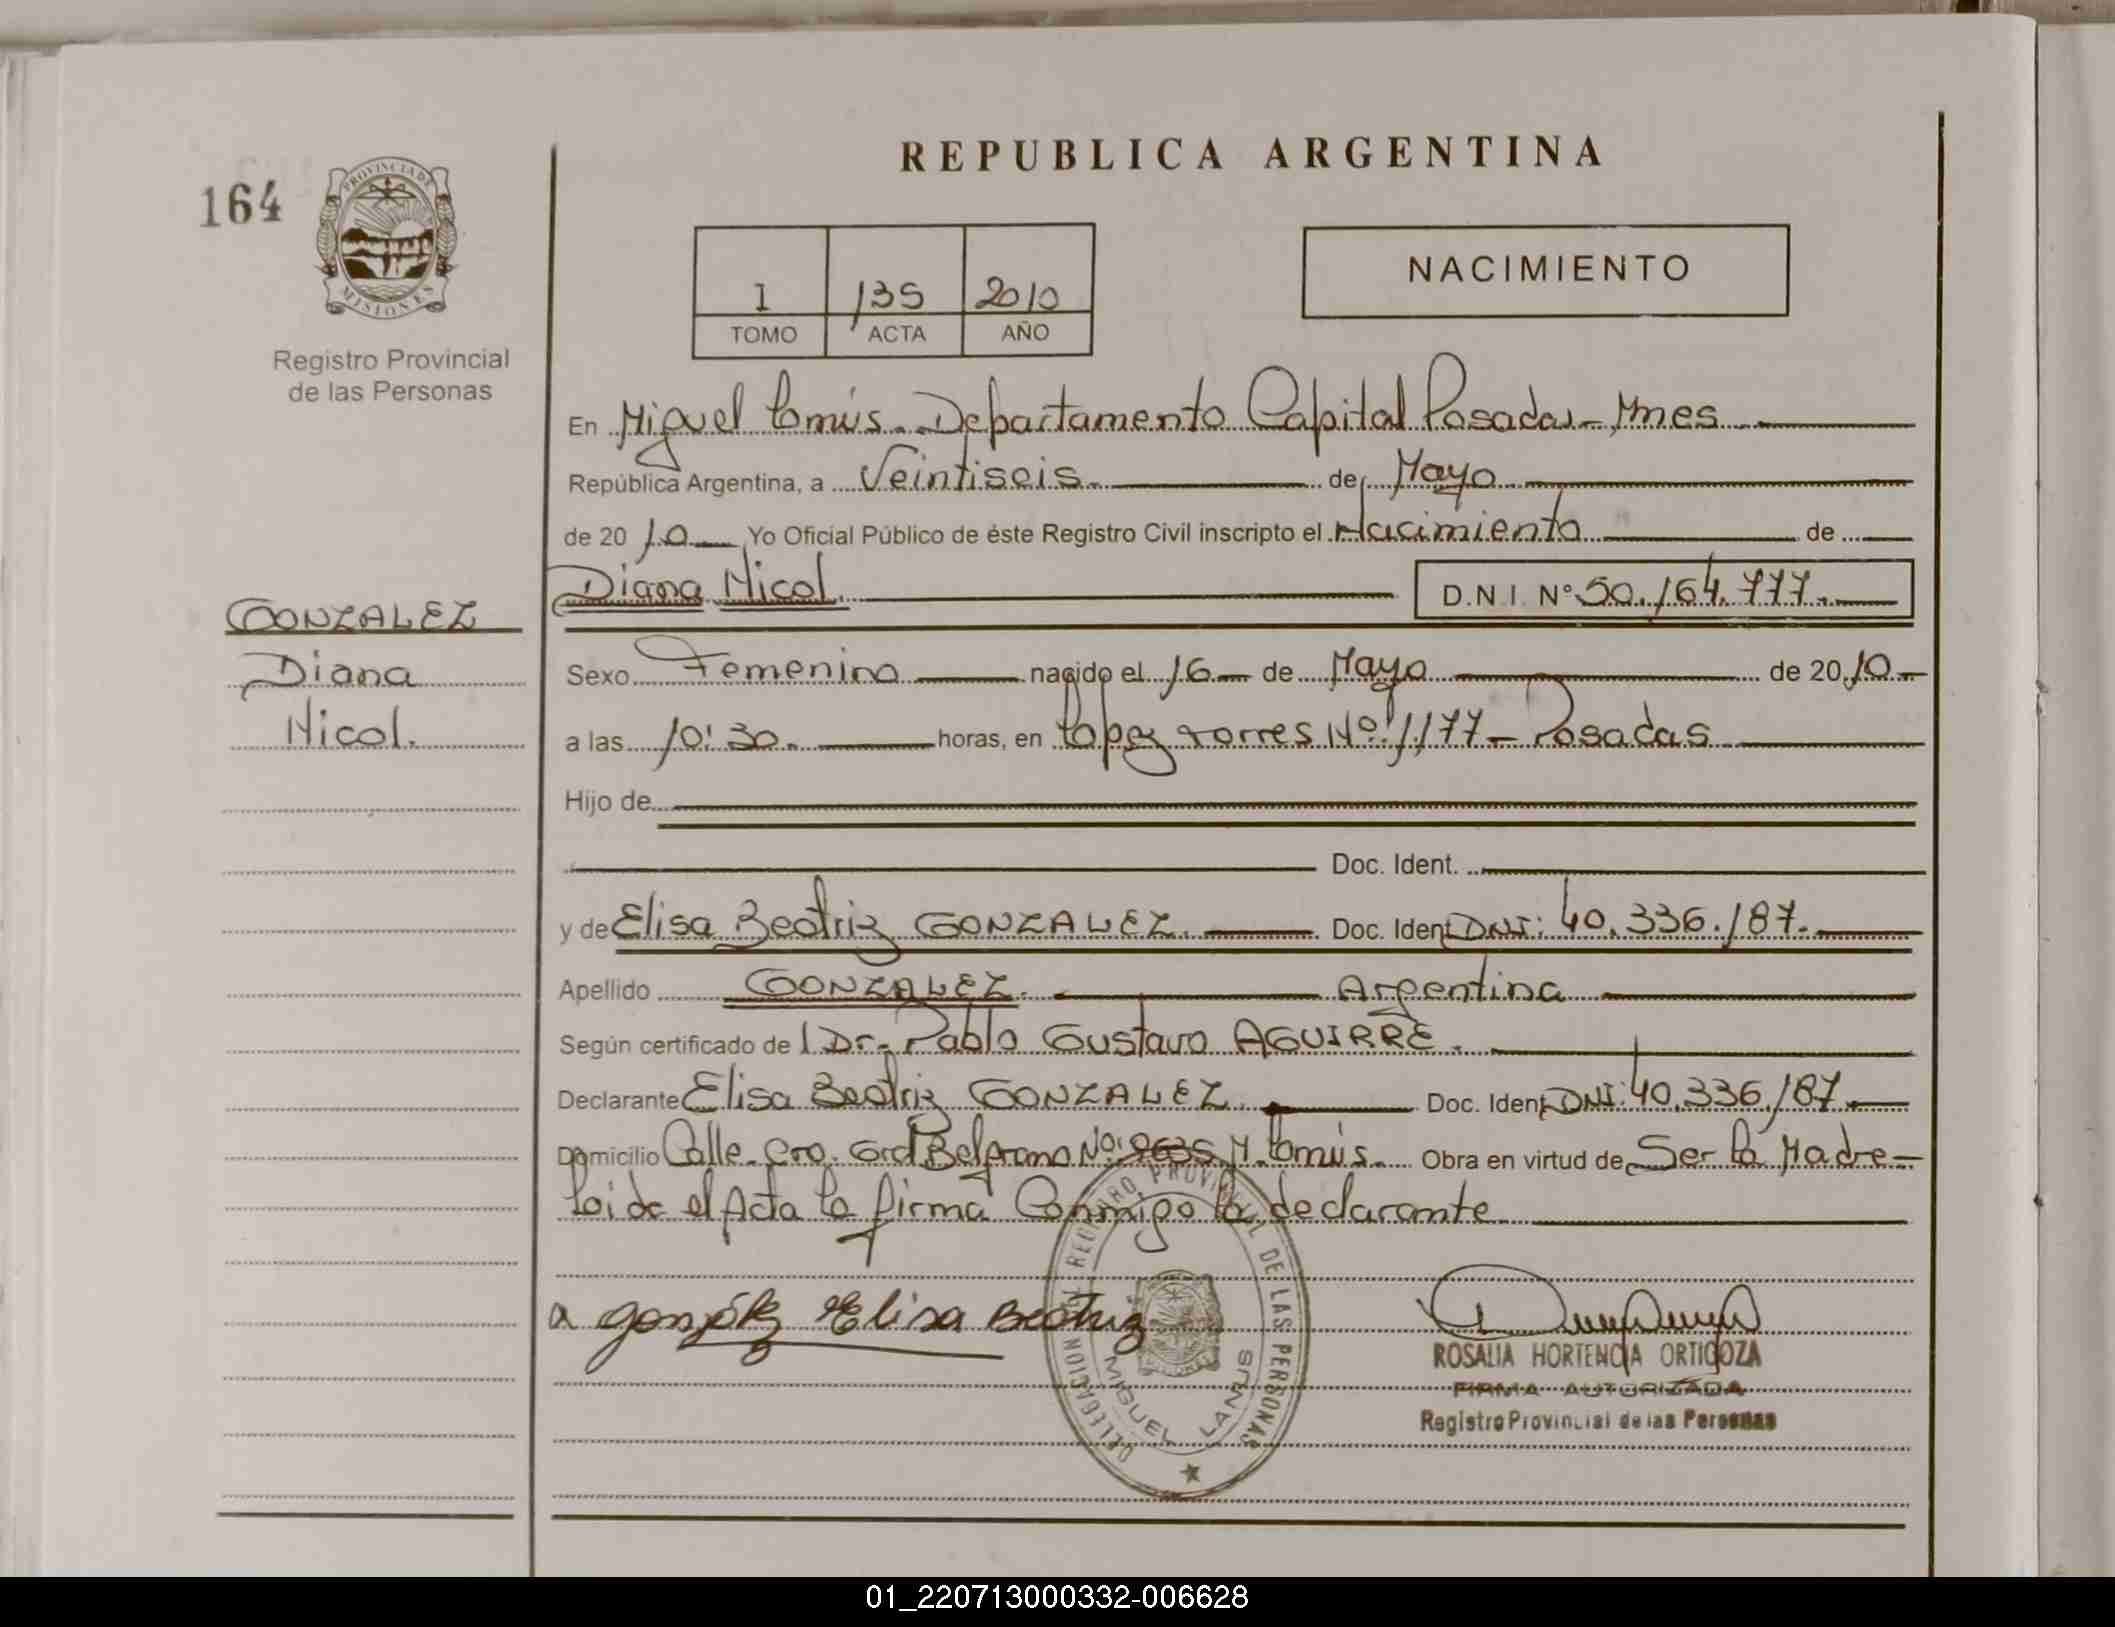 REPUBLICA ARGENTINA
164
PROVINCIA DE
MISIONES
Registro Provincial
de las Personas
I 135 2010
TOMO ACTA AÑO
NACIMIENTO
En Miguel Lanús. Departamento Capital Posadas - Mnes
República Argentina, a Veintiseis. de Mayo
de 2010 Yo Oficial Público de éste Registro Civil inscripto el Nacimiento de
Diana Nicol. D.N.I. Nº 50.164.777.
GONZALEZ
Diana
Nicol.
Sexo Femenino nacido el 16 de Mayo de 2010
a las 10:30. horas, en Lopez Torres Nº: 1177 - Posadas
Hijo de
Doc. Ident.
y de Elisa Beatriz GONZALEZ. Doc. Ident DNI: 40.336.187.
Apellido GONZALEZ. Argentina
Según certificado de l Dr. Pablo Gustavo AGUIRRE.
Declarante Elisa Beatriz GONZALEZ. Doc. Ident DNI: 40.336.187
Domicilio Calle Gral Belgrano Nº: M. Lanús. Obra en virtud de Ser la Madre
Leida el Acta la firma Conmigo la declarante
a González Elisa Beatriz
DELEGACION DEL REGISTRO PROVINCIAL DE LAS PERSONAS
MIGUEL LANUS
ROSALIA HORTENCIA ORTIGOZA
FIRMA AUTORIZADA
Registro Provincial de las Personas
01_220713000332-006628